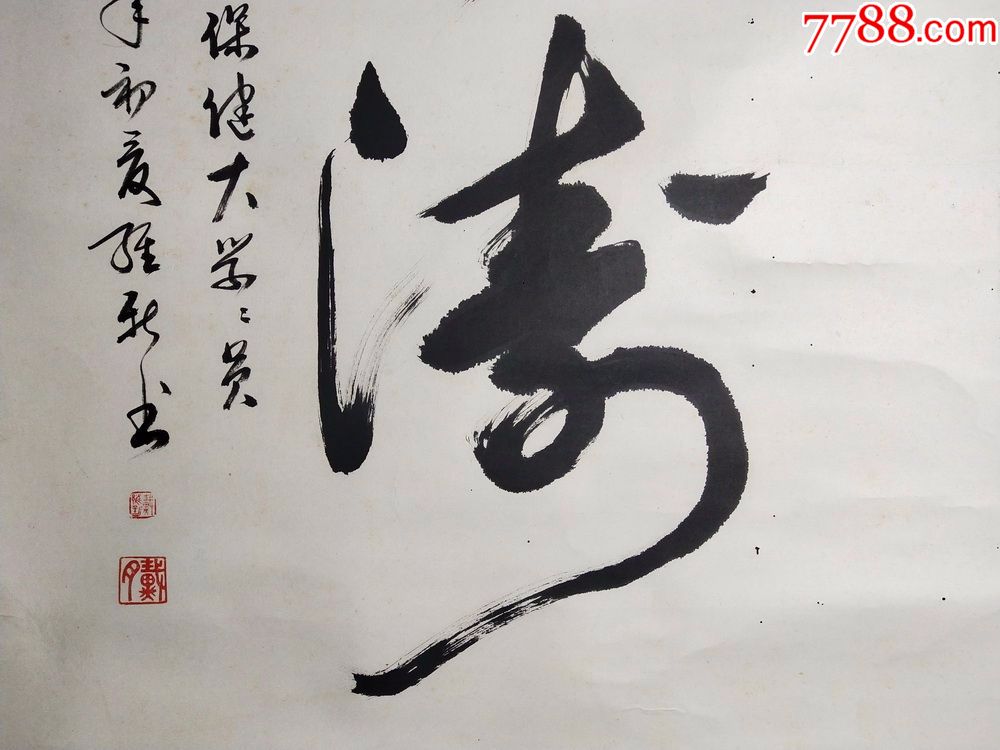 7788.com
涛
保健大学〻员
年初夏维新书